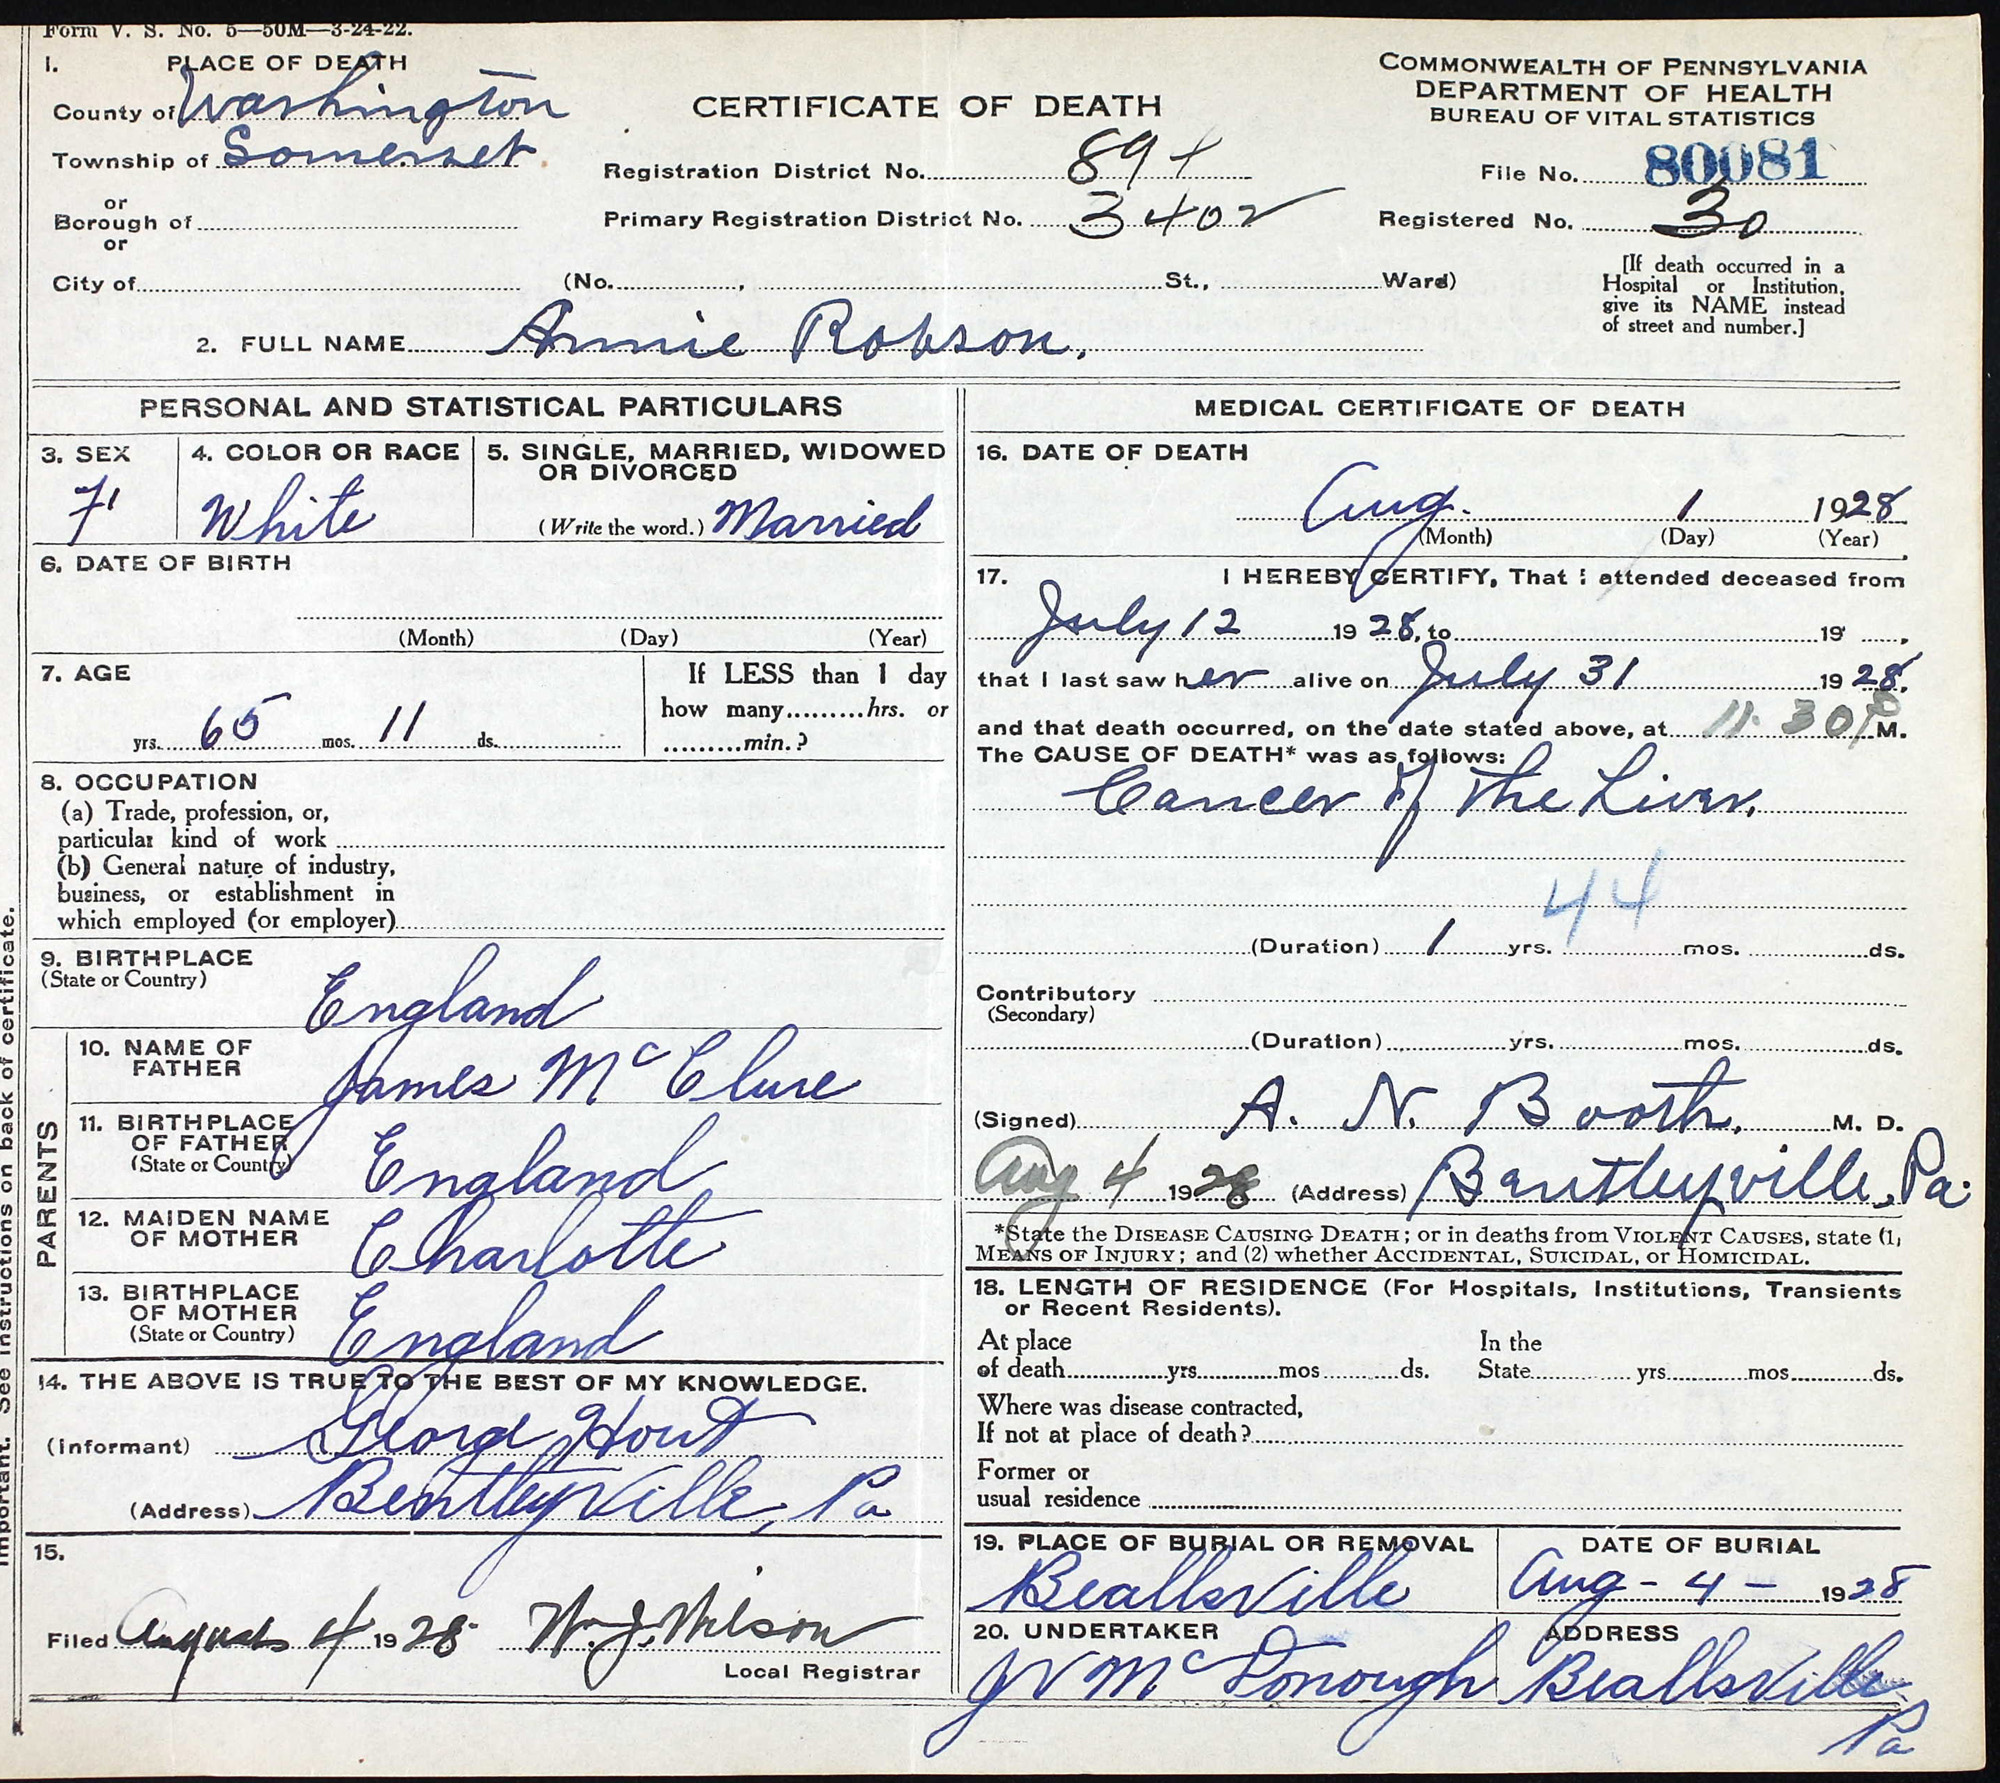 Form V. S. No. 5—50M—3-24-22.
1. PLACE OF DEATH
County of Washington
Township of Somerset
or
Borough of
or
City of (No. , St., Ward)
CERTIFICATE OF DEATH
Registration District No. 894
Primary Registration District No. 3402
COMMONWEALTH OF PENNSYLVANIA
DEPARTMENT OF HEALTH
BUREAU OF VITAL STATISTICS
File No. 80081
Registered No. 30
[If death occurred in a
Hospital or Institution,
give its NAME instead
of street and number.]
2. FULL NAME Annie Robson.
PERSONAL AND STATISTICAL PARTICULARS
3. SEX
F
4. COLOR OR RACE
White
5. SINGLE, MARRIED, WIDOWED
OR DIVORCED
(Write the word.) Married
6. DATE OF BIRTH
(Month) (Day) (Year)
7. AGE
yrs. 65 mos. 11 ds.
If LESS than 1 day
how many hrs. or
min.?
8. OCCUPATION
(a) Trade, profession, or,
particular kind of work
(b) General nature of industry,
business, or establishment in
which employed (or employer)
9. BIRTHPLACE
(State or Country)
England
PARENTS
10. NAME OF
FATHER
James McClure
11. BIRTHPLACE
OF FATHER
(State or Country)
England
12. MAIDEN NAME
OF MOTHER
Charlotte
13. BIRTHPLACE
OF MOTHER
(State or Country)
England
14. THE ABOVE IS TRUE TO THE BEST OF MY KNOWLEDGE.
(Informant) George Hout
(Address) Bentleyville, Pa
15.
Filed August 4 1928 W. J. Wilson
Local Registrar
MEDICAL CERTIFICATE OF DEATH
16. DATE OF DEATH
Aug. 1 1928
(Month) (Day) (Year)
17. I HEREBY CERTIFY, That I attended deceased from
July 12 1928, to 19 ,
that I last saw her alive on July 31 1928,
and that death occurred, on the date stated above, at 11.30 P M.
The CAUSE OF DEATH* was as follows:
Cancer of the Liver.
44
(Duration) 1 yrs. mos. ds.
Contributory
(Secondary)
(Duration) yrs. mos. ds.
(Signed) A. N. Booth, M. D.
Aug 4 1928 (Address) Bentleyville, Pa.
*State the DISEASE CAUSING DEATH; or in deaths from VIOLENT CAUSES, state (1,
MEANS OF INJURY; and (2) whether ACCIDENTAL, SUICIDAL, or HOMICIDAL.
18. LENGTH OF RESIDENCE (For Hospitals, Institutions, Transients
or Recent Residents).
At place
of death yrs. mos ds.
In the
State yrs. mos. ds.
Where was disease contracted,
If not at place of death?
Former or
usual residence
19. PLACE OF BURIAL OR REMOVAL
Beallsville
DATE OF BURIAL
Aug - 4 - 1928
20. UNDERTAKER
J V McDonough
ADDRESS
Beallsville
Pa
important. See instructions on back of certificate.